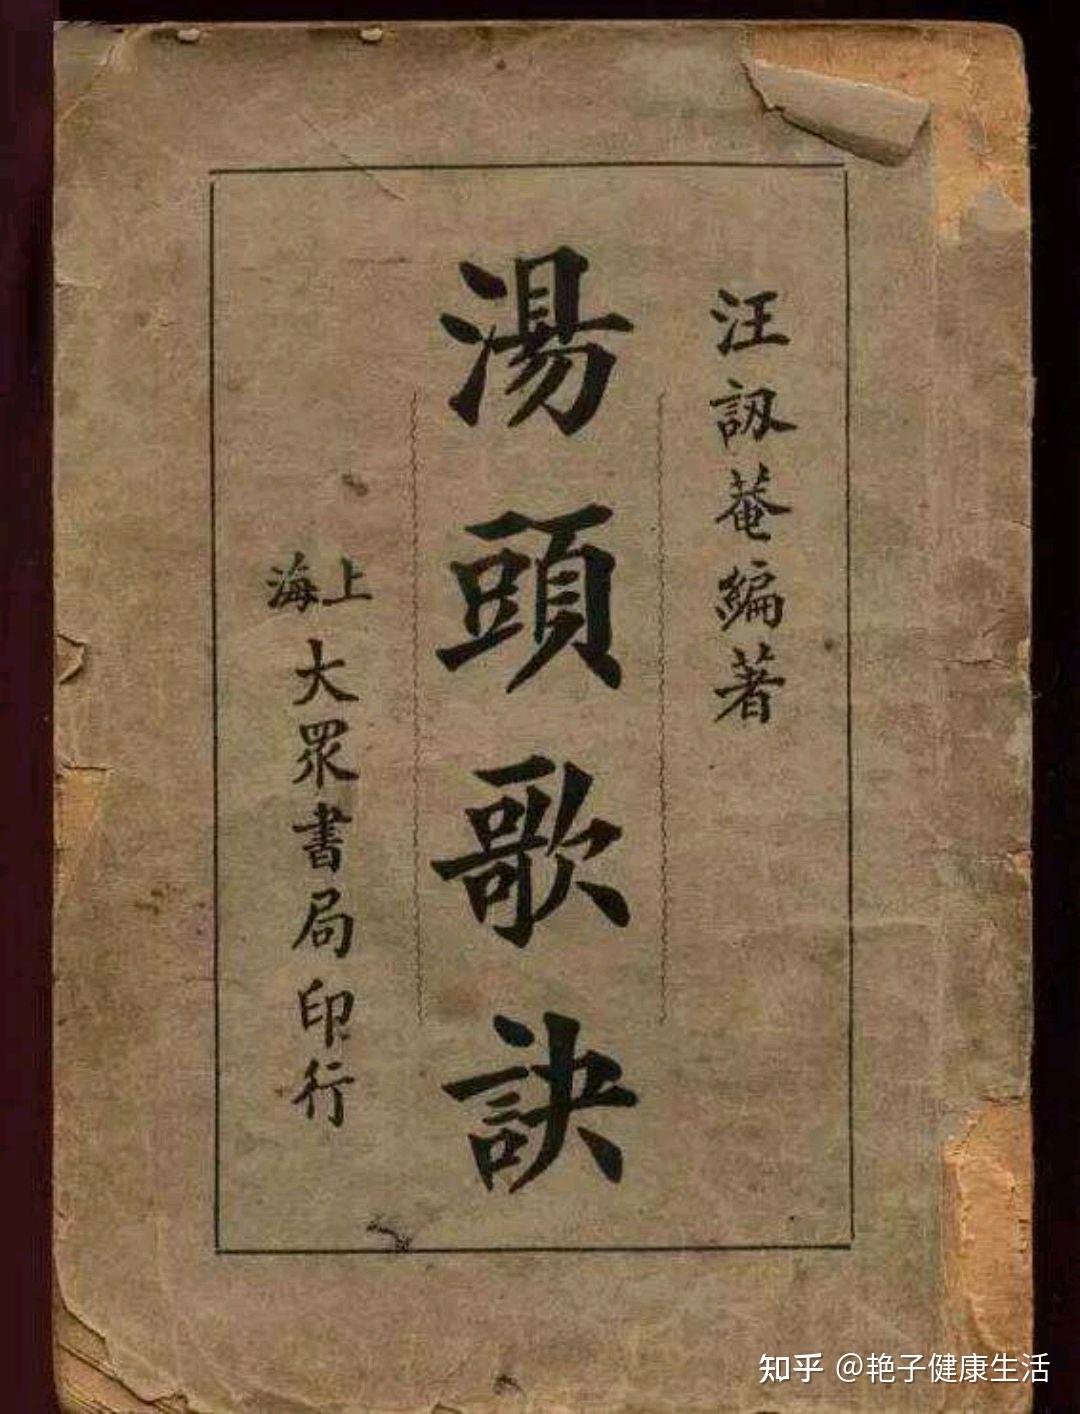 汪訒菴編著
湯頭歌訣
上海大眾書局印行
知乎 @艳子健康生活